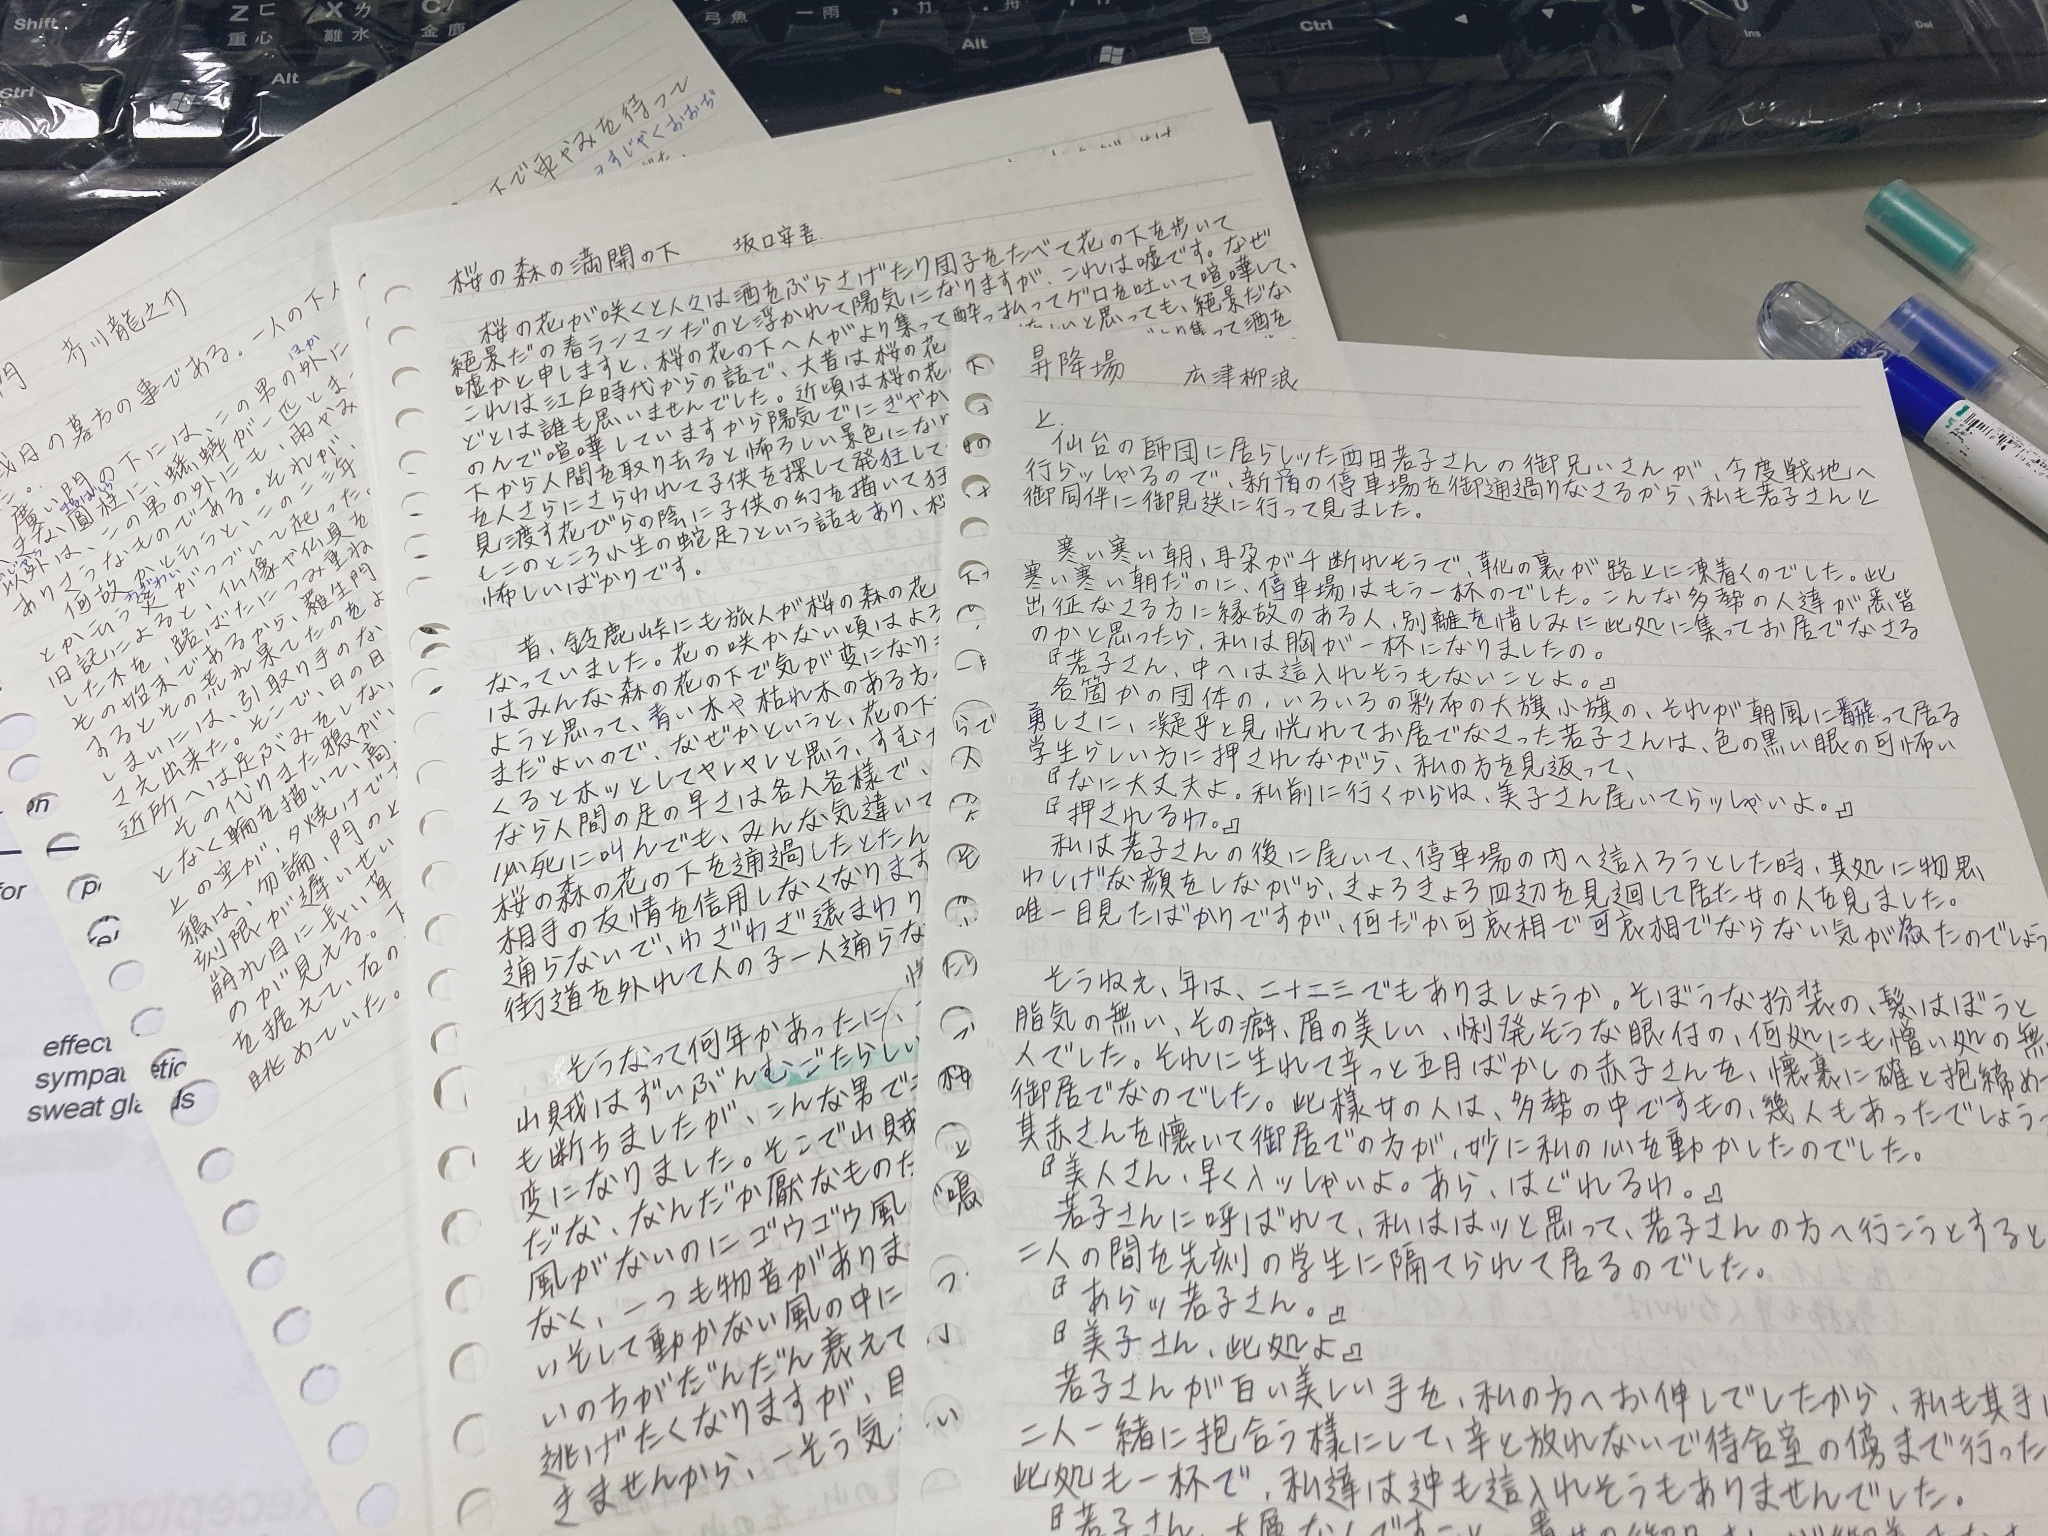 Shift
Z
重
心
X
難
水
C
金
Alt
Ctrl
弓
魚
一
雨
Alt
Ctrl
Ins
Del
下で車やみを待って
芥川龍之介
或日の暮方の事である。一人の下人
廣い門の下には、この男の外に
ほか
蟋蟀が一匹とま
以外は、この男の外にも、雨やみ
ありさうなものである。それが、
何故かと云うと、この二三年、
とか云う災がつづいて起った。
旧記によると、仏像や仏具を
した木を、路ばたにつみ重ね
その始末であるから、羅生門
するとその荒れ果てたのをよ
しまいには、引取り手のな
さえ出来た。そこで、日の目
近所へは足ぶみをしない
その代りまた鴉が
となく輪を描いて、高
上の空が、夕焼けで
鴉は、勿論、門の上
刻限が遅いせい
崩れ目に長い草
のが見える。下
を据えて、右の
眺めていた。
桜の森の満開の下 坂口安吾
桜の花が咲くと人々は酒をぶらさげたり団子をたべて花の下を歩いて
絶景だの春ランマンだのと浮かれて陽気になりますが、これは嘘です。なぜ
嘘かと申しますと、桜の花の下へ人がより集って酔っ払ってゲロを吐いて喧嘩して、
これは江戸時代からの話で、大昔は桜の花 と思っても、絶景だな
どとは誰も思いませんでした。近頃は桜の花
のんで喧嘩していますから陽気でにぎやか
下から人間を取り去ると怖ろしい景色になり
を人さらにさらわれて子供を探して発狂して
見渡す花びらの陰に子供の幻を描いて狂
もこのところ小生の蛇足)という話もあり、桜
怖しいばかりです。
昔、鈴鹿峠にも旅人が桜の森の花
なっていました。花の咲かない頃はよろ
はみんな森の花の下で気が変になり
ようと思って、青い木や枯れ木のある方
まだよいので、なぜかというと、花の下
くるとホッとしてヤレヤレと思う、すむ
なら人間の足の早さは各人各様で、
必死に叫んでも、みんな気違いで
桜の森の花の下を通過したとたん
相手の友情を信用しなくなります
通らないで、わざわざ遠まわり
街道を外れて人の子一人通らな
そうなって何年かあったに、
山賊はずいぶんむごたらしい
も断ちましたが、こんな男で
変になりました。そこで山賊
だな、なんだか厭なものだ
風がないのにゴウゴウ風
なく、一つも物音がありま
いそして動かない風の中に
いのちがだんだん衰えて
逃げたくなりますが、目
きませんから、一そう気
昇降場 広津柳浪
上
仙台の師団に居らしッた西田若子さんの御兄いさんが、今度戦地へ
行らッしゃるので、新宿の停車場を御通過りなさるから、私も若子さんと
御同伴に御見送に行って見ました。
寒い寒い朝、耳朶が千断れそうで、靴の裏が路上に凍着くのでした。此
寒い寒い朝だのに、停車場はもう一杯のでした。こんな多勢の人達が悉皆
出征なさる方に縁故のある人、別離を惜しみに此処に集ってお居でなさる
のかと思ったら、私は胸が一杯になりましたの。
『若子さん、中へは這入れそうもないことよ。』
各箇かの団体の、いろいろの彩布の大旗小旗の、それが朝風に飜って居る
勇しさに、凝乎と見恍れてお居でなさった若子さんは、色の黒い眼の可怖い
学生らしい方に押されながら、私の方を見返って、
『なに大丈夫よ。私前に行くからね、美子さん尾いてらッしゃいよ。』
『押されるわ。』
私は若子さんの後に尾いて、停車場の内へ這入ろうとした時、其処に物思
わしげな顔をしながら、きょろきょろ四辺を見廻して居た女の人を見ました。
唯一目見たばかりですが、何だか可哀相で可哀相でならない気が為たのでしょう
そうねえ、年は、二十二三でもありましょうか。そぼうな扮装の、髪はぼうと
脂気の無い、その癖、眉の美しい、悧発そうな眼付の、何処にも憎い処の無
人でした。それに生れて辛っと五月ばかしの赤子さんを、懐裏に確と抱締め
御居でなのでした。此様女の人は、多勢の中ですもの、幾人もあったでしょう
其赤さんを懐いて御居での方が、妙に私の心を動かしたのでした。
『美人さん、早く入ッしゃいよ。あら、はぐれるわ。』
若子さんに呼ばれて、私ははッと思って、若子さんの方へ行こうとすると
二人の間を先刻の学生に隔てられて居るのでした。
『あらッ若子さん。』
『美子さん、此処よ』
若子さんが白い美しい手を、私の方へお伸しでしたから、私も其手に
二人一緒に抱合う様にして、辛と放れないで待合室の傍まで行った
此処も一杯で、私達は迚も這入れそうもありませんでした。
『若子さん、大
effect
sympathetic
sweat glands
for